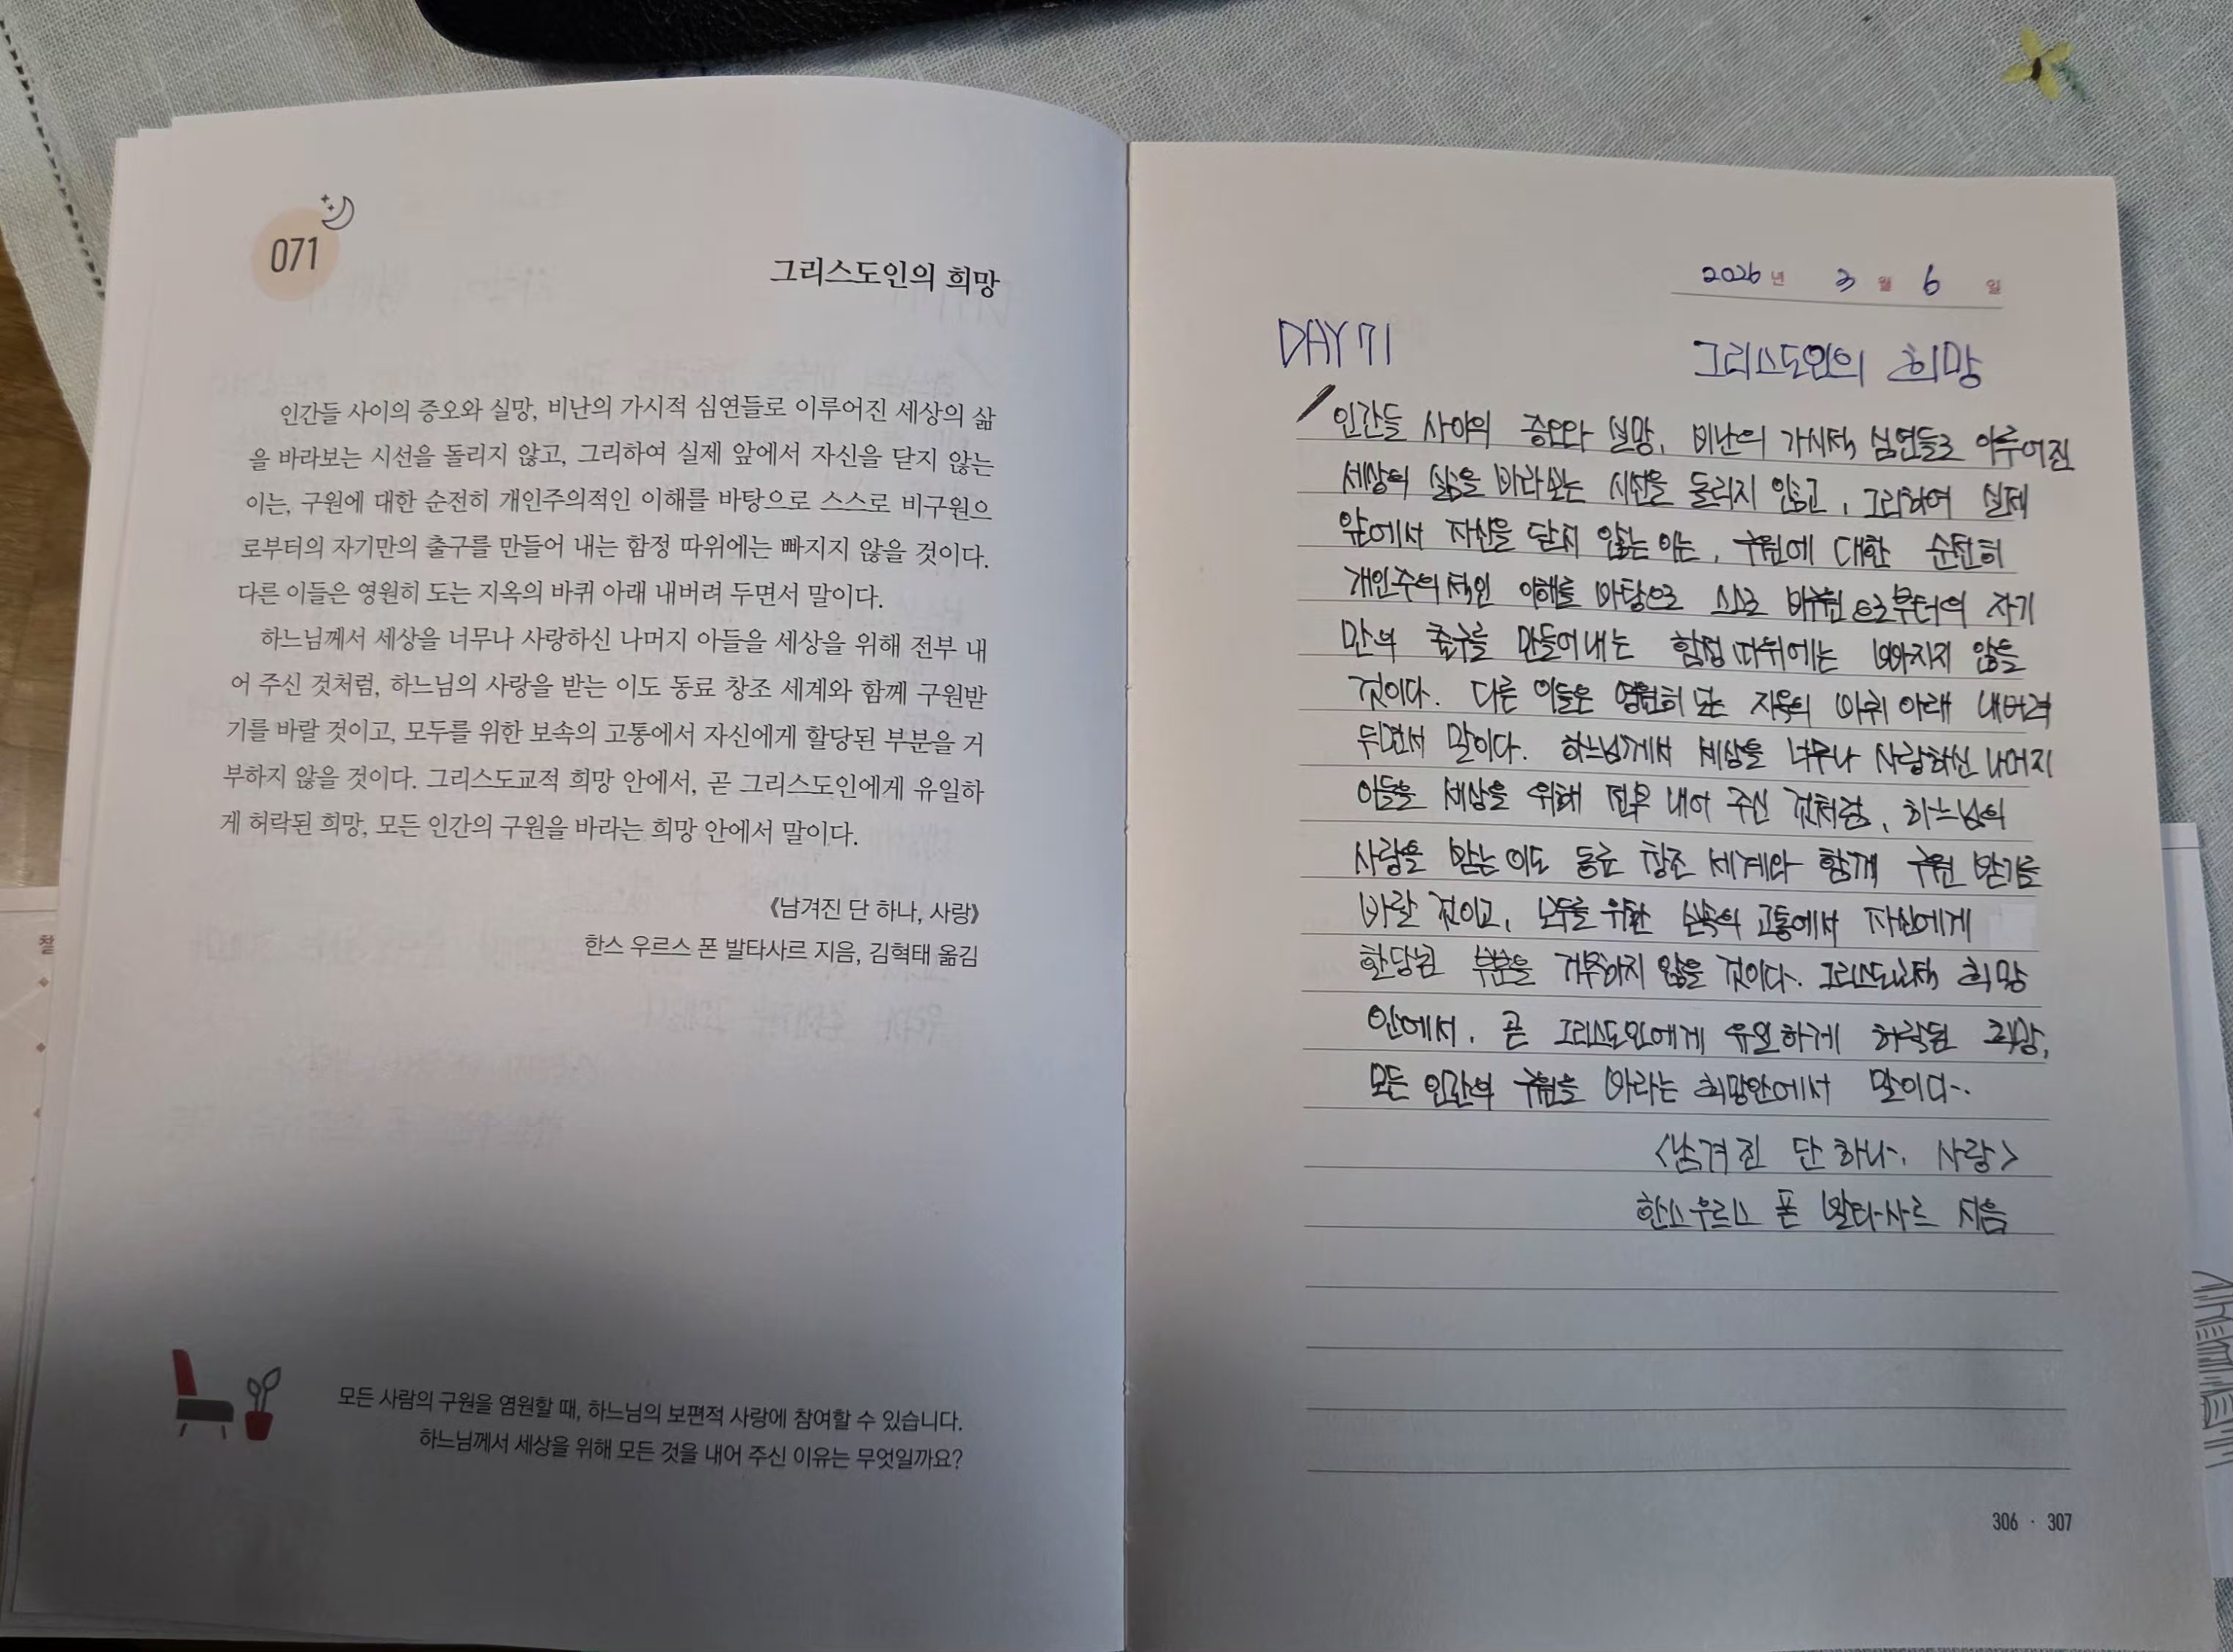 071
그리스도인의 희망
인간들 사이의 증오와 실망, 비난의 가시적 심연들로 이루어진 세상의 삶
을 바라보는 시선을 돌리지 않고, 그리하여 실제 앞에서 자신을 닫지 않는
이는, 구원에 대한 순전히 개인주의적인 이해를 바탕으로 스스로 비구원으
로부터의 자기만의 출구를 만들어 내는 함정 따위에는 빠지지 않을 것이다.
다른 이들은 영원히 도는 지옥의 바퀴 아래 내버려 두면서 말이다.
하느님께서 세상을 너무나 사랑하신 나머지 아들을 세상을 위해 전부 내
어 주신 것처럼, 하느님의 사랑을 받는 이도 동료 창조 세계와 함께 구원받
기를 바랄 것이고, 모두를 위한 보속의 고통에서 자신에게 할당된 부분을 거
부하지 않을 것이다. 그리스도교적 희망 안에서, 곧 그리스도인에게 유일하
게 허락된 희망, 모든 인간의 구원을 바라는 희망 안에서 말이다.
《남겨진 단 하나, 사랑》
한스 우르스 폰 발타사르 지음, 김혁태 옮김
모든 사람의 구원을 염원할 때, 하느님의 보편적 사랑에 참여할 수 있습니다.
하느님께서 세상을 위해 모든 것을 내어 주신 이유는 무엇일까요?
2026년 3월 6일
DAY 71
그리스도인의 희망
인간들 사이의 증오와 실망, 비난의 가시적 심연들로 이루어진
세상의 삶을 바라보는 시선을 돌리지 않고, 그리하여 실제
앞에서 자신을 닫지 않는 이는, 구원에 대한 순전히
개인주의적인 이해를 바탕으로 스스로 비구원으로부터의 자기
만의 출구를 만들어내는 함정 따위에는 빠지지 않을
것이다. 다른 이들은 영원히 도는 지옥의 바퀴 아래 내버려
두면서 말이다. 하느님께서 세상을 너무나 사랑하신 나머지
아들을 세상을 위해 전부 내어 주신 것처럼, 하느님의
사랑을 받는 이도 동료 창조 세계와 함께 구원 받기를
바랄 것이고, 모두를 위한 보속의 고통에서 자신에게
할당된 부분을 거부하지 않을 것이다. 그리스도교적 희망
안에서, 곧 그리스도인에게 유일하게 허락된 희망,
모든 인간의 구원을 바라는 희망안에서 말이다.
<남겨진 단 하나, 사랑>
한스우르스 폰 발타사르 지음
306 · 307